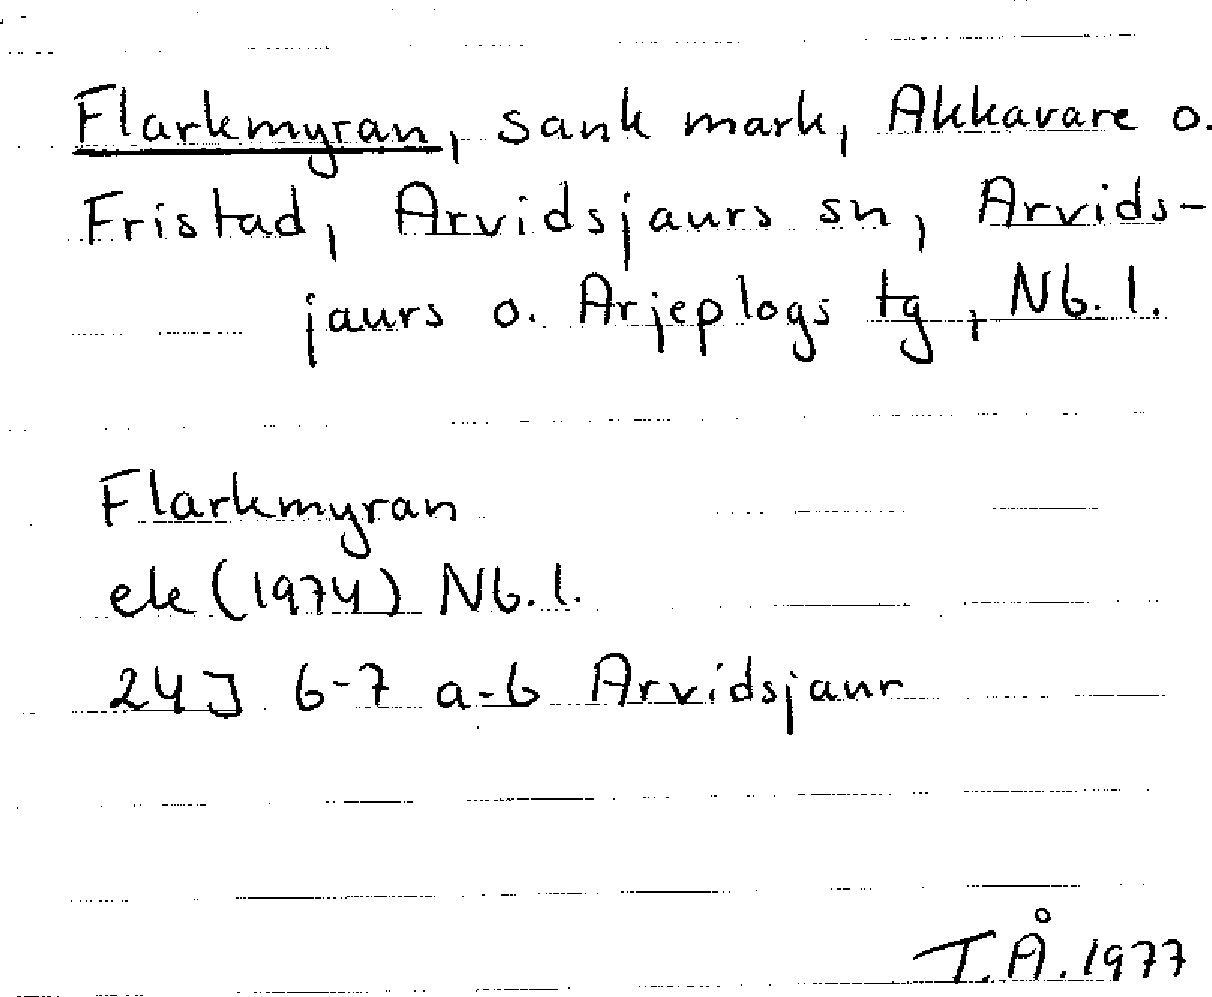 Flarkmyran, sank mark, Akkavare o.
Fristad, Arvidsjaurs sn, Arvids-
jaurs o. Arjeplogs tg, Nb. l.
Flarkmyran
ek (1974) Nb. l.
24J 6-7 a-b Arvidsjaur
T.Å. 1977